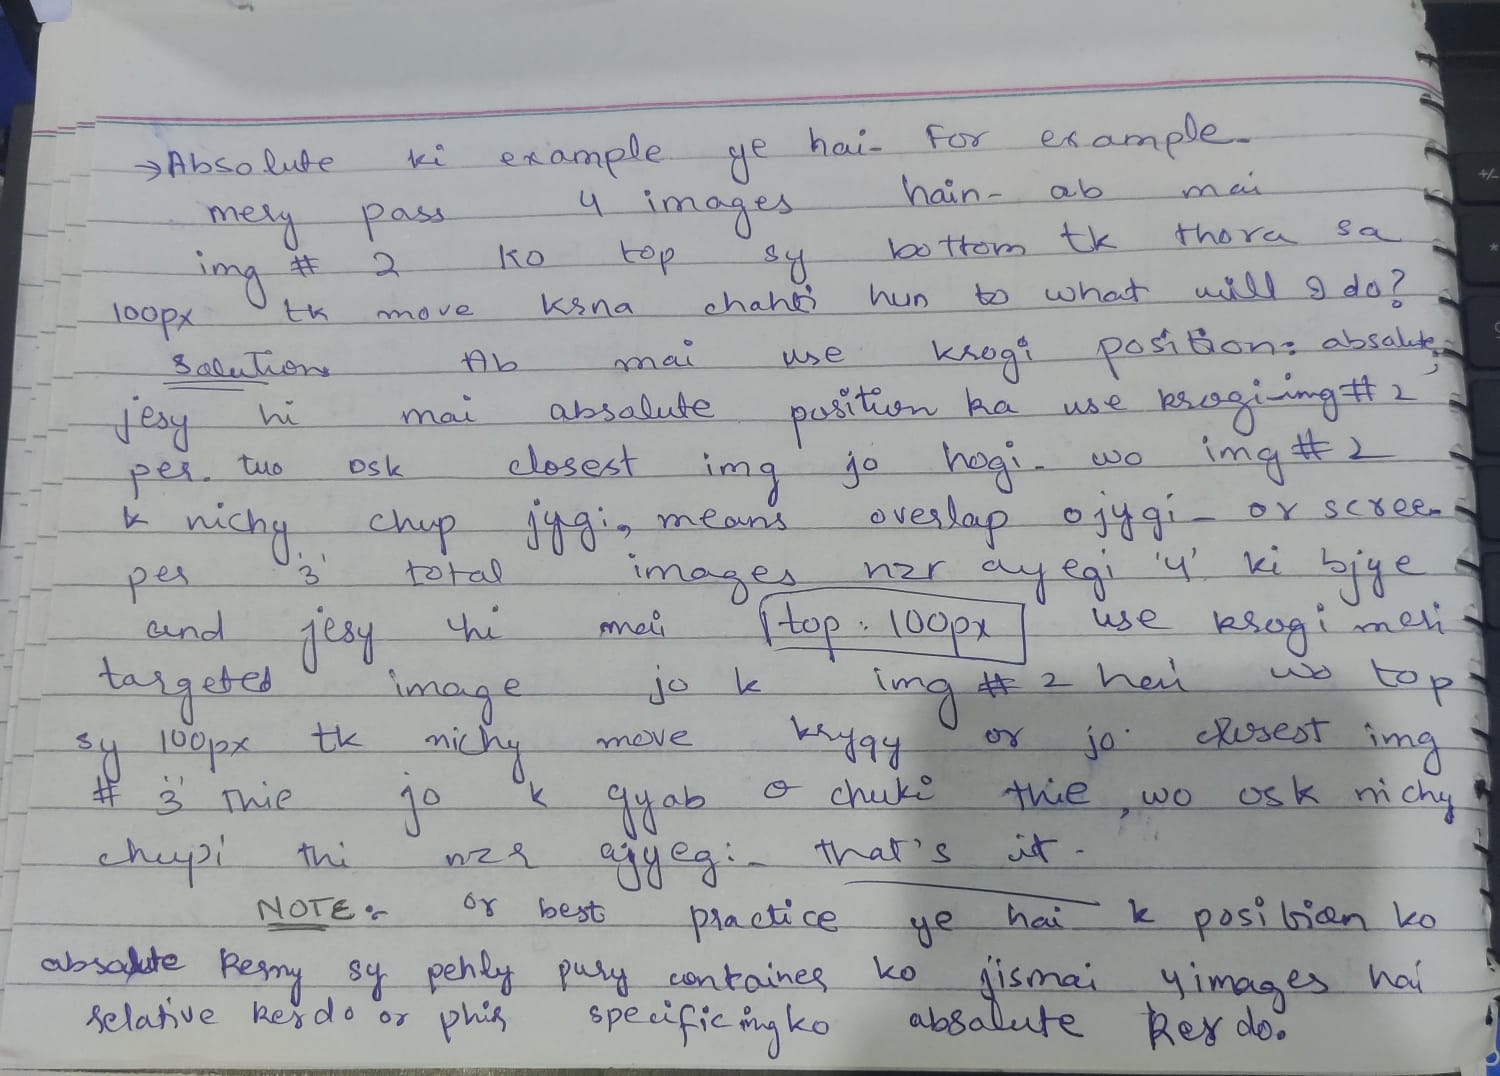 →Absolute ki example ye hai- For example-
mery pass 4 images hain- ab mai
img # 2 ko top sy bottom tk thora sa
100px tk move krna chahti hun to what will I do?
Solution Ab mai use krogi position: absolute,
jesy hi mai absolute position ka use krogi-img # 2
per. tuo osk closest img jo hogi- wo img # 2
k nichy chup jygi, means overlap ojygi- or screen
per '3' total images nzr ayegi '4' ki bjye
and jesy hi mai top: 100px use krogi meri
targeted image jo k img # 2 hai wo top
sy 100px tk nichy move krygy or jo closest img
# '3' thie jo k gyab o chuki thie, wo osk nichy
chupi thi nzr ajyegi- that's it-
NOTE:- or best practice ye hai k position ko
absolute kerny sy pehly pury container ko jismai 4images hai
relative kerdo or phir specific img ko absolute kerdo.